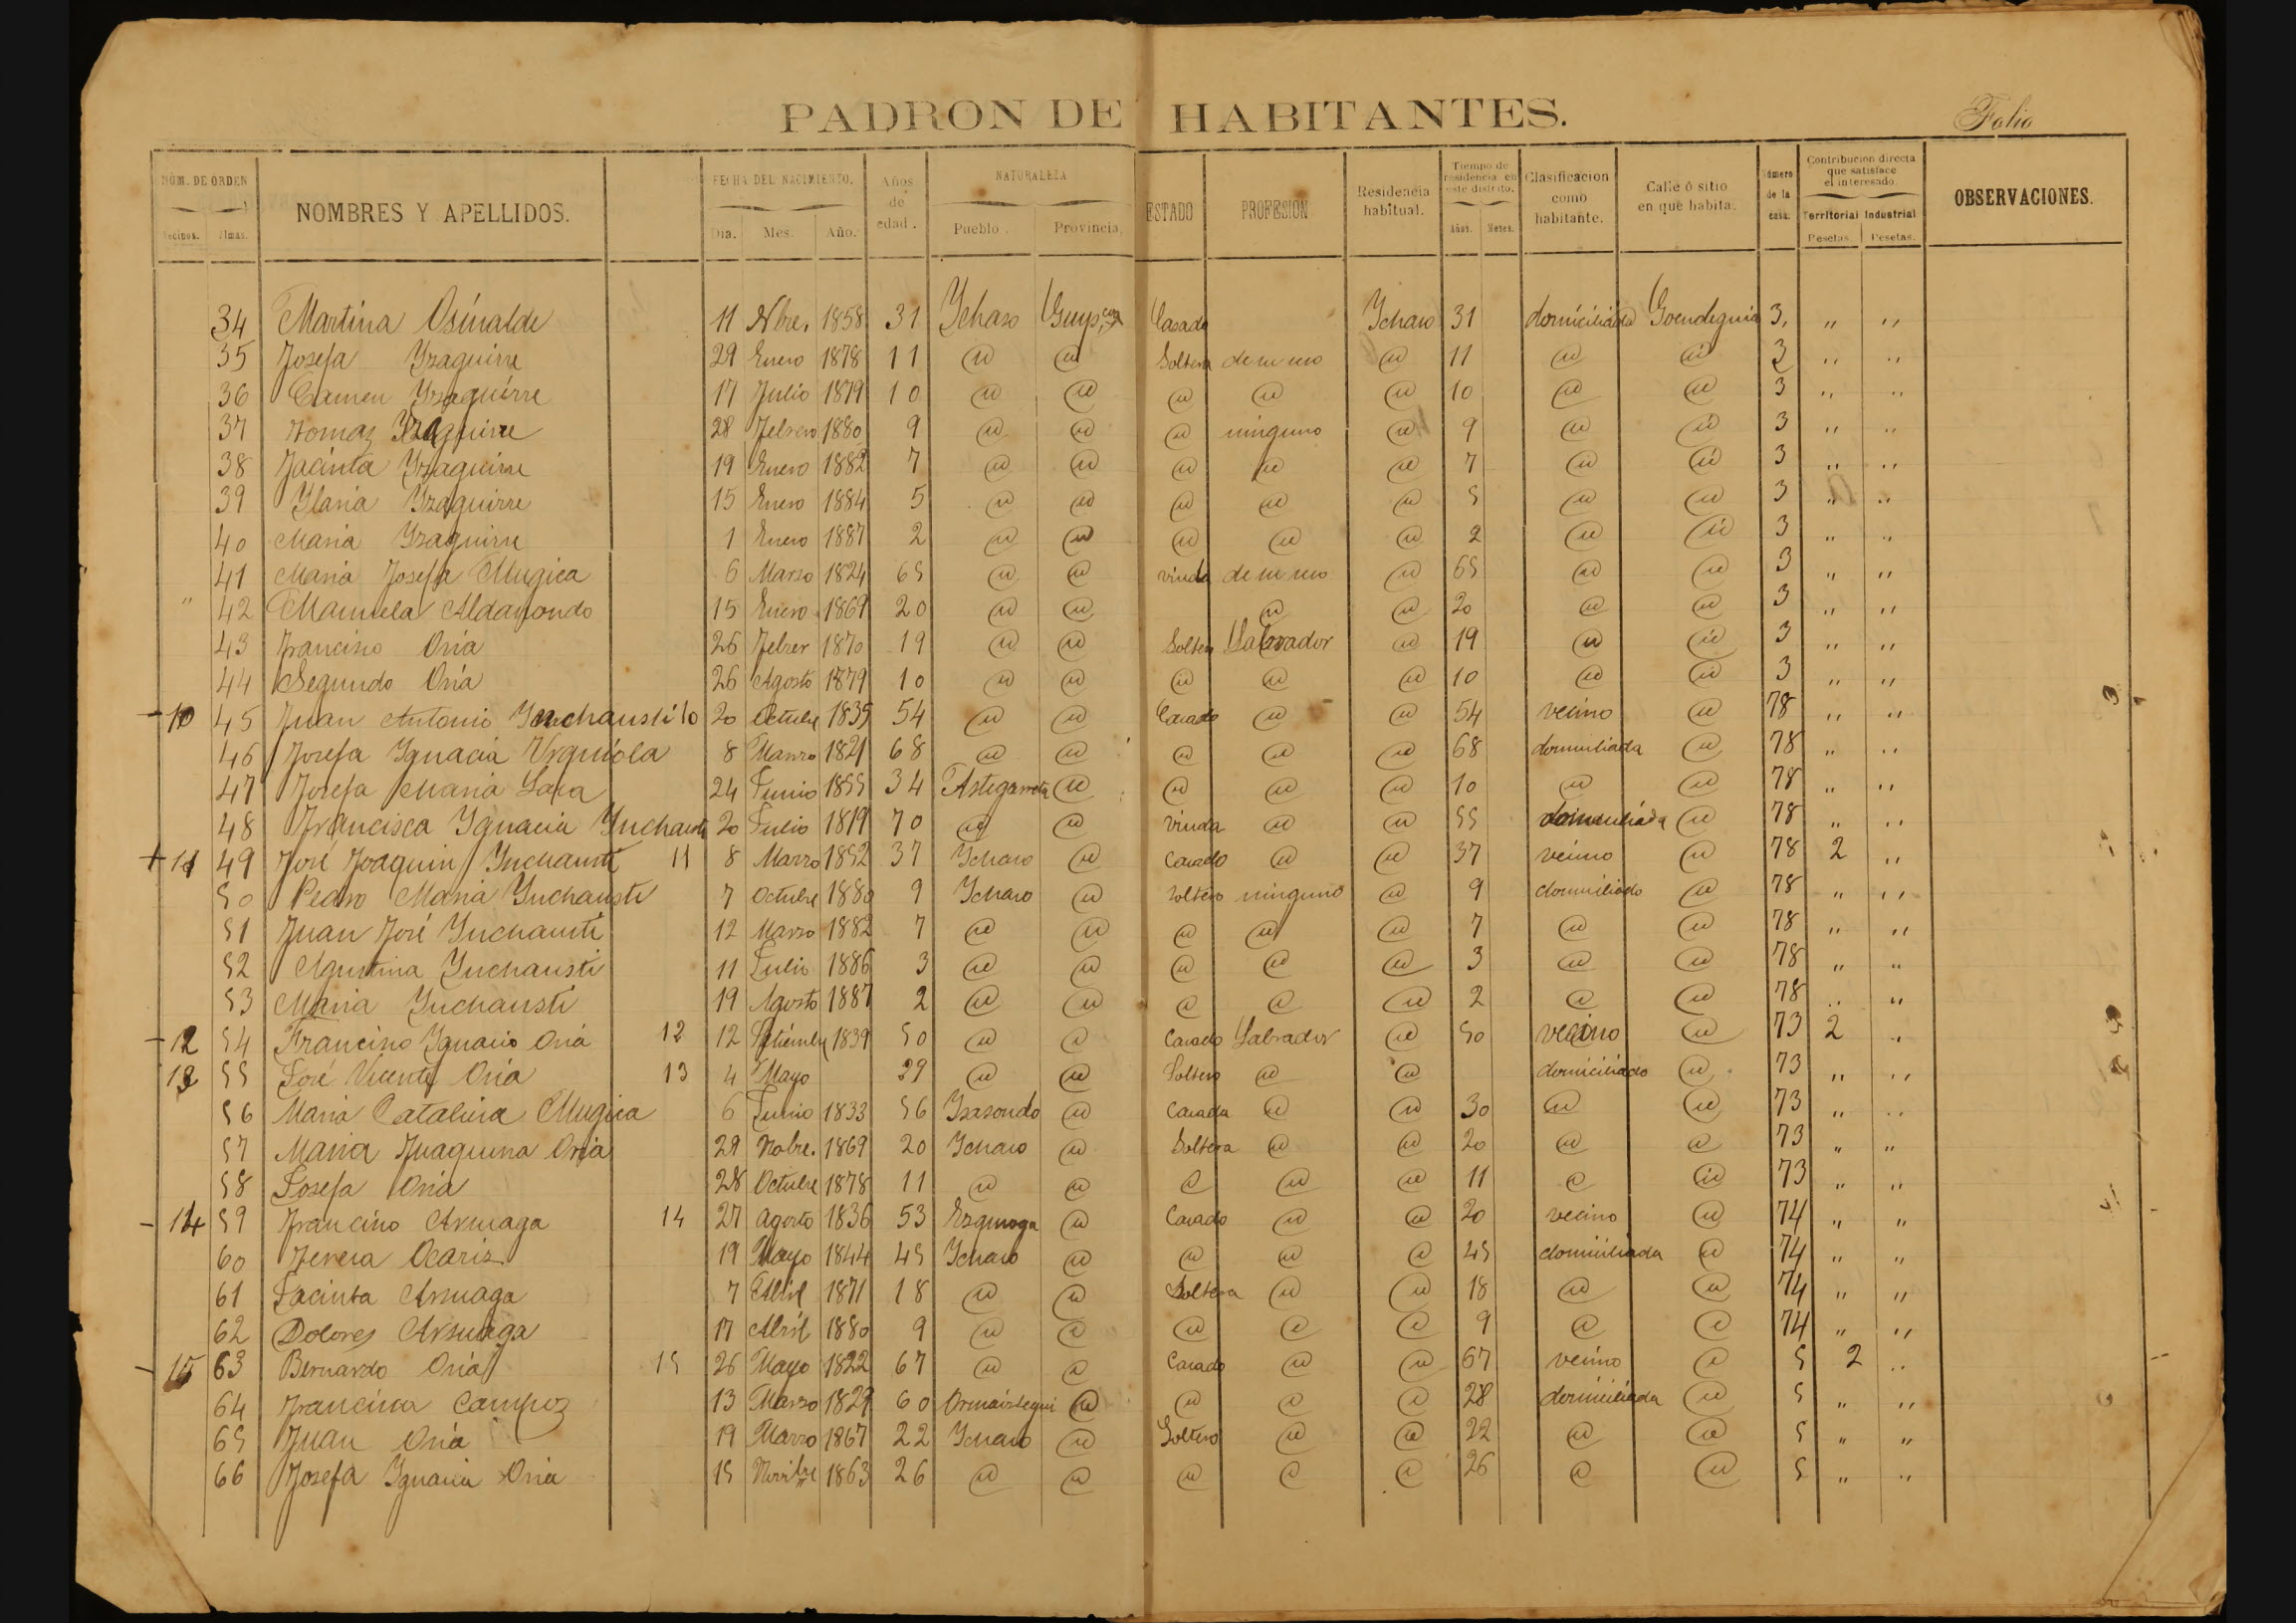 PADRON DE HABITANTES.
Folio
NÚM. DE ORDEN
Vecinos. Almas.
NOMBRES Y APELLIDOS.
FECHA DEL NACIMIENTO.
Dia. Mes. Año.
Años de edad.
NATURALEZA
Pueblo. Provincia.
ESTADO
PROFESION
Residencia habitual.
Tiempo de residencia en este distrito.
Años. Meses.
Clasificacion como habitante.
Calle ó sitio en que habita.
Número de la casa.
Contribucion directa que satisface el interesado.
Territorial Industrial
Pesetas. Pesetas.
OBSERVACIONES.
34 Martina Osinalde 11 Nbre. 1858 31 Ychaso Guipzca Casada Ychaso 31 domiciliada Goendeguia 3. " "
35 Josefa Yzaguirre 29 Enero 1878 11 @ @ Soltera de su sexo @ 11 @ @ 3 " "
36 Carmen Yzaguirre 17 Julio 1879 10 @ @ @ @ @ 10 @ @ 3 " "
37 Tomaz Yzaguirre 28 Febrero 1880 9 @ @ @ ninguno @ 9 @ @ 3 " "
38 Jacinta Yzaguirre 19 Enero 1882 7 @ @ @ @ @ 7 @ @ 3 " "
39 Ylaria Yzaguirre 15 Enero 1884 5 @ @ @ @ @ 5 @ @ 3 " "
40 Maria Yzaguirre 1 Enero 1887 2 @ @ @ @ @ 2 @ @ 3 " "
41 Maria Josefa Mugica 6 Marzo 1824 65 @ @ viuda de su sexo @ 65 @ @ 3 " "
" 42 Manuela Aldasondo 15 Enero 1869 20 @ @ @ @ 20 @ @ 3 " "
43 Francisco Oria 26 Febrer 1870 19 @ @ Soltero Labrador @ 19 @ @ 3 " "
44 Segundo Oria 26 Agosto 1879 10 @ @ @ @ @ 10 @ @ 3 " "
- 10 45 Juan Antonio Ynchausti 10 20 Octubre 1835 54 @ @ Casado @ @ 54 vecino @ 78 " "
46 Josefa Ygnacia Urquiola 8 Marzo 1821 68 @ @ @ @ @ 68 domiciliada @ 78 " "
47 Josefa Maria Lasa 24 Junio 1855 34 Astigarreta @ @ @ @ 10 @ @ 78 " "
48 Francisca Ygnacia Ynchausti 20 Julio 1819 70 @ @ Viuda @ @ 55 domiciliada @ 78 " "
+ 11 49 José Joaquin Ynchausti 11 8 Marzo 1852 37 Ychaso @ Casado @ @ 37 vecino @ 78 2 "
50 Pedro Maria Ynchausti 7 Octubre 1880 9 Ychaso @ Soltero ninguno @ 9 domiciliado @ 78 " "
51 Juan José Ynchausti 12 Marzo 1882 7 @ @ @ @ @ 7 @ @ 78 " "
52 Agustina Ynchausti 11 Julio 1886 3 @ @ @ @ @ 3 @ @ 78 " "
53 Maria Ynchausti 19 Agosto 1887 2 @ @ @ @ @ 2 @ @ 78 " "
- 12 54 Francisco Ygnacio Oria 12 12 Setiembre 1839 50 @ @ Casado Labrador @ 50 vecino @ 73 2 "
13 55 José Vicente Oria 13 4 Mayo 29 @ @ Soltero @ @ domiciliado @ 73 " "
56 Maria Catalina Mugica 6 Junio 1833 56 Ysasondo @ Casada @ @ 30 @ @ 73 " "
57 Maria Juaquina Oria 29 Nobre. 1869 20 Ychaso @ Soltera @ @ 20 @ @ 73 " "
58 Josefa Oria 28 Octubre 1878 11 @ @ @ @ @ 11 @ @ 73 " "
- 14 59 Francisco Arsuaga 14 27 Agosto 1836 53 Ezquioga @ Casado @ @ 20 vecino @ 74 " "
60 Ocariz 19 Mayo 1844 45 Ychaso @ @ @ @ 45 domiciliada @ 74 " "
61 Jacinta Arsuaga 7 Abril 1871 18 @ @ Soltera @ @ 18 @ @ 74 " "
62 Dolores Arsuaga 17 Abril 1880 9 @ @ @ @ @ 9 @ @ 74 " "
- 15 63 Bernardo Oria 15 26 Mayo 1822 67 @ @ Casado @ @ 67 vecino @ 5 2 "
64 Francisca Campoz 13 Marzo 1829 60 Ormaiztegui @ @ @ @ 28 domiciliada @ 5 " "
65 Juan Oria 19 Marzo 1867 22 Ychaso @ Soltero @ @ 22 @ @ 5 " "
66 Josefa Ygnacia Oria 15 Novibre 1863 26 @ @ @ @ @ 26 @ @ 5 " "